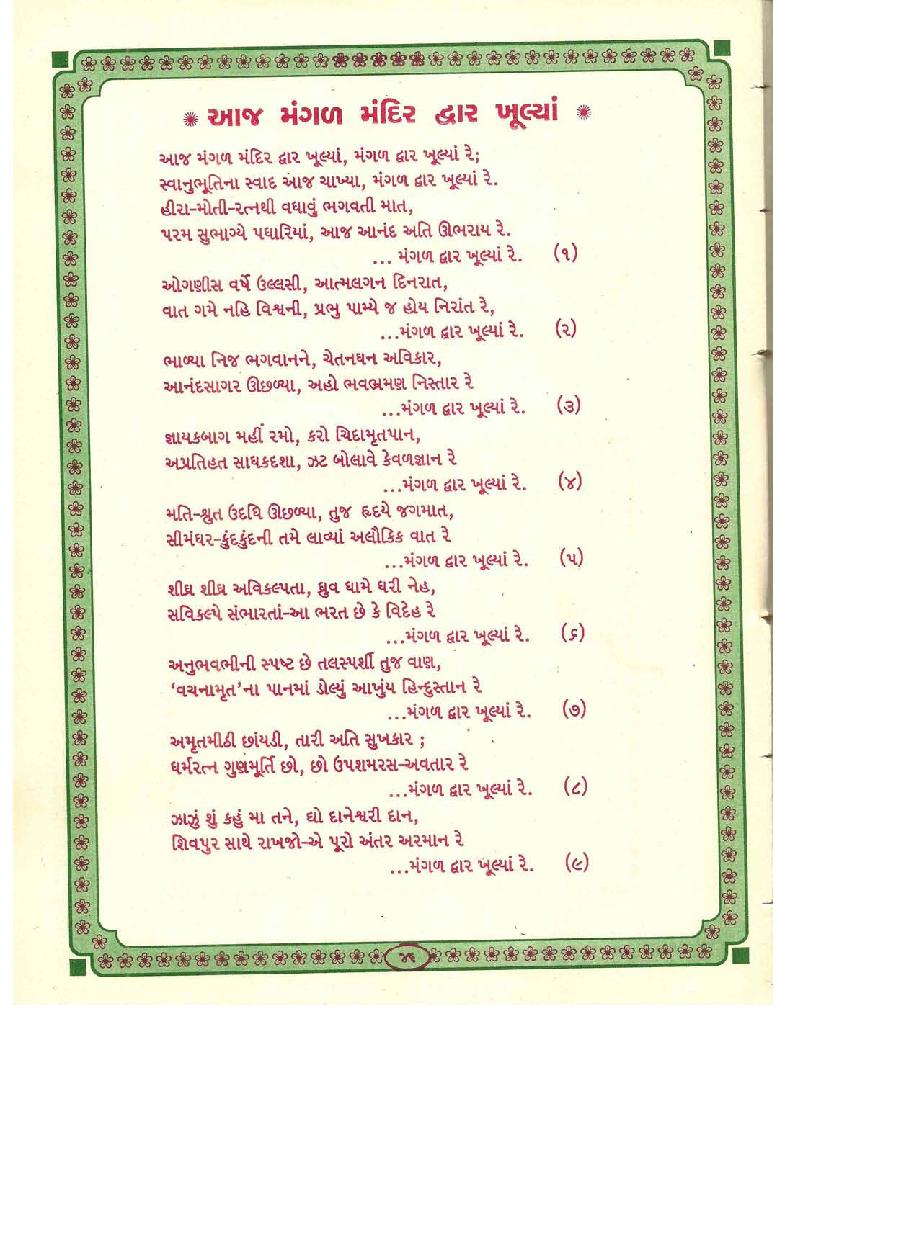 આજ મંગળ મંદિર દ્વાર ખૂલ્યાં
આજ મંગળ મંદિર દ્વાર ખૂલ્યાં, મંગળ દ્વાર ખૂલ્યાં રે;
સ્વાનુભૂતિના સ્વાદ આજ ચાખ્યા, મંગળ દ્વાર ખૂલ્યાં રે.
હીરા-મોતી-રત્નથી વધાવું ભગવતી માત,
પરમ સુભાગ્યે પધારિયાં, આજ આનંદ અતિ ઊભરાય રે.
... મંગળ દ્વાર ખૂલ્યાં રે. (૧)
ઓગણીસ વર્ષે ઉલ્લસી, આત્મલગન દિનરાત,
વાત ગમે નહિ વિશ્વની, પ્રભુ પામ્યે જ હોય નિરાંત રે,
...મંગળ દ્વાર ખૂલ્યાં રે. (૨)
ભાળ્યા નિજ ભગવાનને, ચેતનઘન અવિકાર,
આનંદસાગર ઊછળ્યા, અહો ભવભ્રમણ નિસ્તાર રે
...મંગળ દ્વાર ખૂલ્યાં રે. (૩)
જ્ઞાયકબાગ મહીં રમો, કરો ચિદામૃતપાન,
અપ્રતિહત સાધકદશા, ઝટ બોલાવે કેવળજ્ઞાન રે
...મંગળ દ્વાર ખૂલ્યાં રે. (૪)
મતિ-શ્રુત ઉદધિ ઊછળ્યા, તુજ હૃદયે જગમાત,
સીમંધર-કુંદકુંદની તમે લાવ્યાં અલૌકિક વાત રે
...મંગળ દ્વાર ખૂલ્યાં રે. (૫)
શીઘ્ર શીઘ્ર અવિકલ્પતા, ધ્રુવ ધામે ધરી નેહ,
સવિકલ્પે સંભારતાં-આ ભરત છે કે વિદેહ રે
...મંગળ દ્વાર ખૂલ્યાં રે. (૬)
અનુભવભીની સ્પષ્ટ છે તલસ્પર્શી તુજ વાણ,
‘વચનામૃત’ના પાનમાં ડોલ્યું આખુંય હિન્દુસ્તાન રે
...મંગળ દ્વાર ખૂલ્યાં રે. (૭)
અમૃતમીઠી છાંયડી, તારી અતિ સુખકાર ;
ધર્મરત્ન ગુણમૂર્તિ છો, છો ઉપશમરસ-અવતાર રે
...મંગળ દ્વાર ખૂલ્યાં રે. (૮)
ઝાઝું શું કહું મા તને, દ્યો દાનેશ્વરી દાન,
શિવપુર સાથે રાખજો-એ પૂરો અંતર અરમાન રે
...મંગળ દ્વાર ખૂલ્યાં રે. (૯)
૪૬